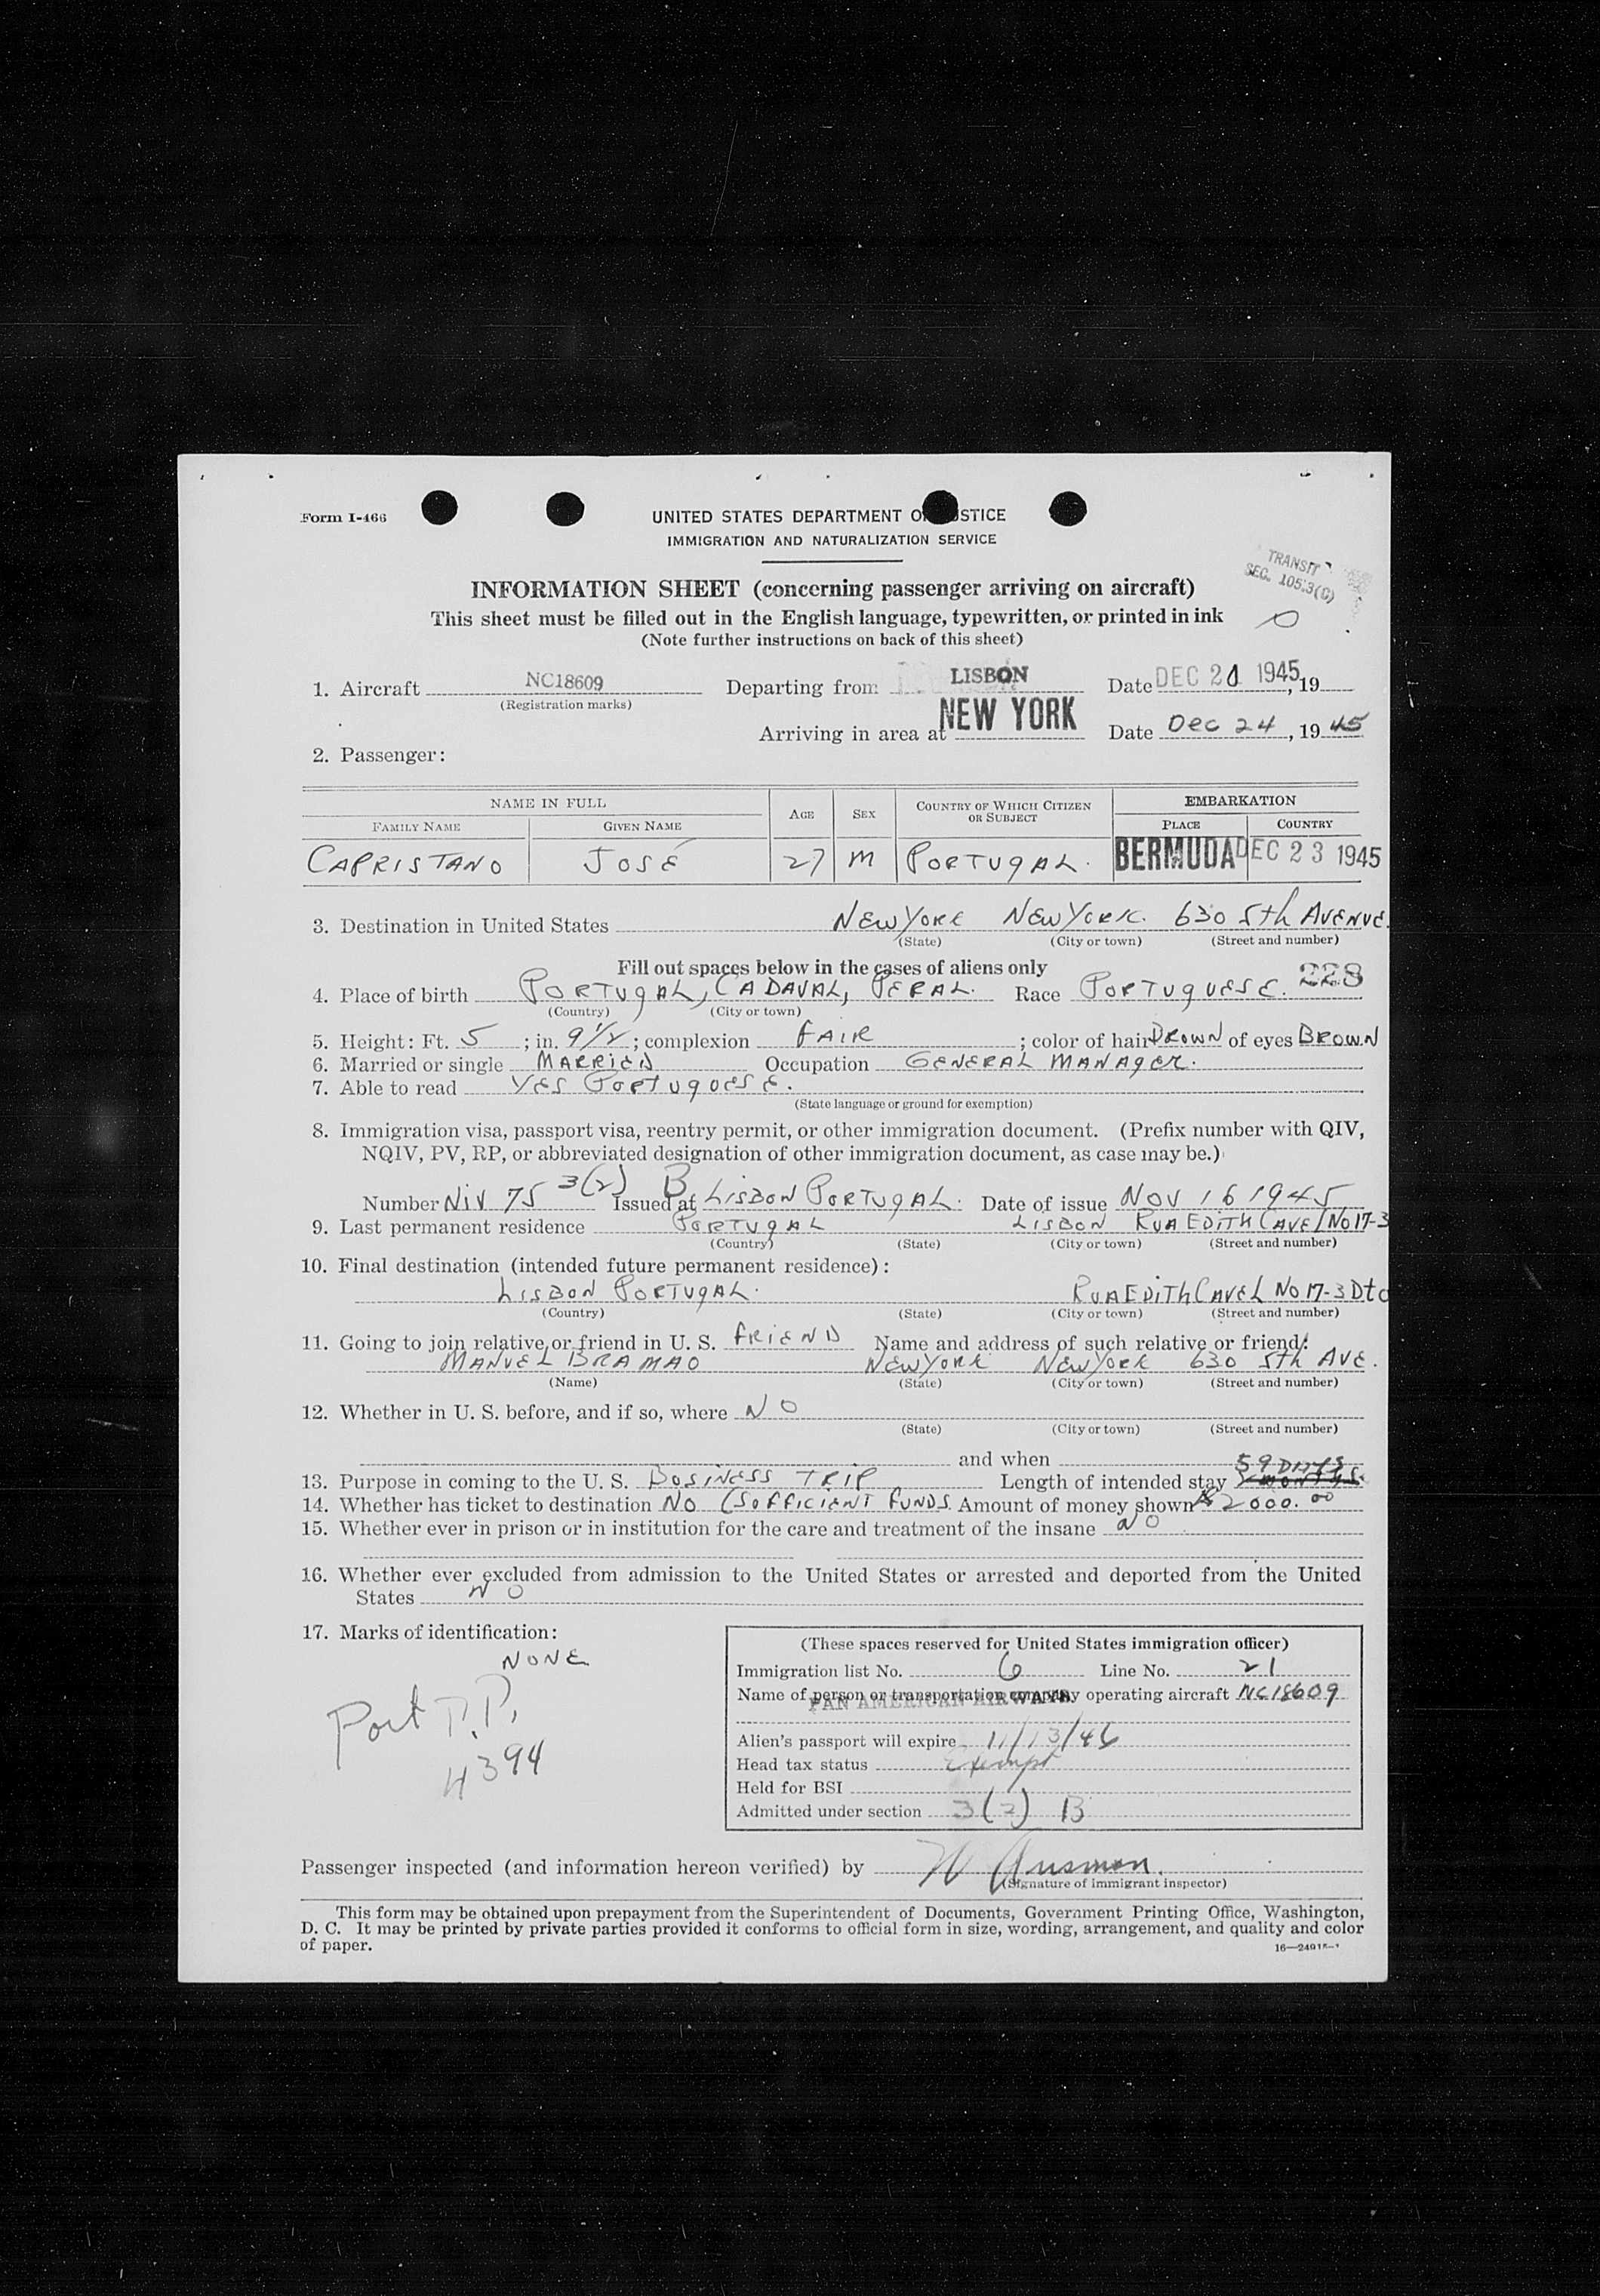 Form I-466
UNITED STATES DEPARTMENT OF JUSTICE
IMMIGRATION AND NATURALIZATION SERVICE
TRANSIT
SEC. 105.3(C)
INFORMATION SHEET (concerning passenger arriving on aircraft)
This sheet must be filled out in the English language, typewritten, or printed in ink
(Note further instructions on back of this sheet)
1. Aircraft NC18609 Departing from LISBON Date DEC 21 1945, 19
(Registration marks)
Arriving in area at NEW YORK Date Dec 24, 1945
2. Passenger:
NAME IN FULL AGE SEX COUNTRY OF WHICH CITIZEN OR SUBJECT EMBARKATION
FAMILY NAME GIVEN NAME PLACE COUNTRY
CAPRISTANO JOSÉ 27 M PORTUGAL. BERMUDA DEC 23 1945
3. Destination in United States NEW YORK NEW YORK. 630 5th AVENUE.
(State) (City or town) (Street and number)
Fill out spaces below in the cases of aliens only
228
4. Place of birth PORTUGAL, CADAVAL, PERAL. Race PORTUGUESE.
(Country) (City or town)
5. Height: Ft. 5; in. 9 1/2; complexion FAIR; color of hair BROWN of eyes BROWN
6. Married or single MARRIED Occupation GENERAL MANAGER.
7. Able to read YES PORTUGUESE.
(State language or ground for exemption)
8. Immigration visa, passport visa, reentry permit, or other immigration document. (Prefix number with QIV,
NQIV, PV, RP, or abbreviated designation of other immigration document, as case may be.)
Number NIV 75 3(2) B Issued at LISBON PORTUGAL. Date of issue NOV 16 1945
9. Last permanent residence PORTUGAL LISBON RUA EDITH CAVEL No 17-3
(Country) (State) (City or town) (Street and number)
10. Final destination (intended future permanent residence):
LISBON PORTUGAL. RUA EDITH CAVEL No 17-3 Dto
(Country) (State) (City or town) (Street and number)
11. Going to join relative or friend in U. S. FRIEND Name and address of such relative or friend:
MANUEL BRAMAO NEW YORK NEW YORK 630 5th AVE.
(Name) (State) (City or town) (Street and number)
12. Whether in U. S. before, and if so, where NO
(State) (City or town) (Street and number)
and when
59 DAYS
13. Purpose in coming to the U. S. BUSINESS TRIP Length of intended stay MONTHS.
14. Whether has ticket to destination NO (SOFFICIENT FUNDS. Amount of money shown $2000.00
15. Whether ever in prison or in institution for the care and treatment of the insane NO
16. Whether ever excluded from admission to the United States or arrested and deported from the United
States NO
17. Marks of identification:
NONE
Port P.P.
4394
(These spaces reserved for United States immigration officer)
Immigration list No. 6 Line No. 21
Name of person or transportation company operating aircraft NC18609
PAN AMERICAN AIRWAYS
Alien's passport will expire 11/13/46
Head tax status Exempt
Held for BSI
Admitted under section 3(2) B
Passenger inspected (and information hereon verified) by
(Signature of immigrant inspector)
This form may be obtained upon prepayment from the Superintendent of Documents, Government Printing Office, Washington,
D. C. It may be printed by private parties provided it conforms to official form in size, wording, arrangement, and quality and color
of paper.